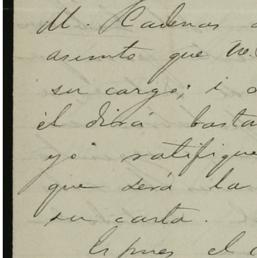 M. Cadenas
asunto que Ve.
su cargo; i
él dirá basta
yo ratifique
que será la
su carta.
Es pues el